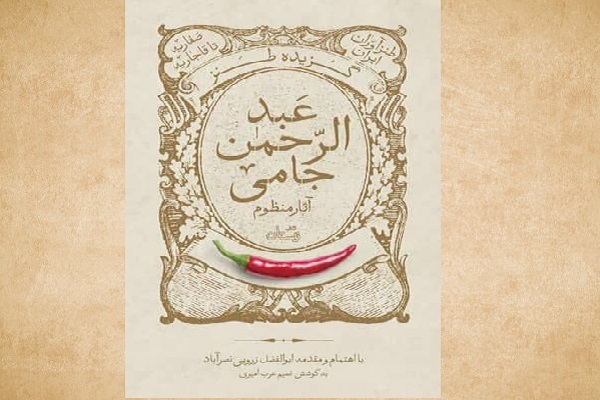 طنزآوران
ایران
صفاریه
تا قاجاریه
گزیده طنز
عَبد
الرّحمٰن
جامی
آثار منظوم
با اهتمام و مقدمه ابوالفضل زرویی نصرآباد
به کوشش نسیم عرب امیری